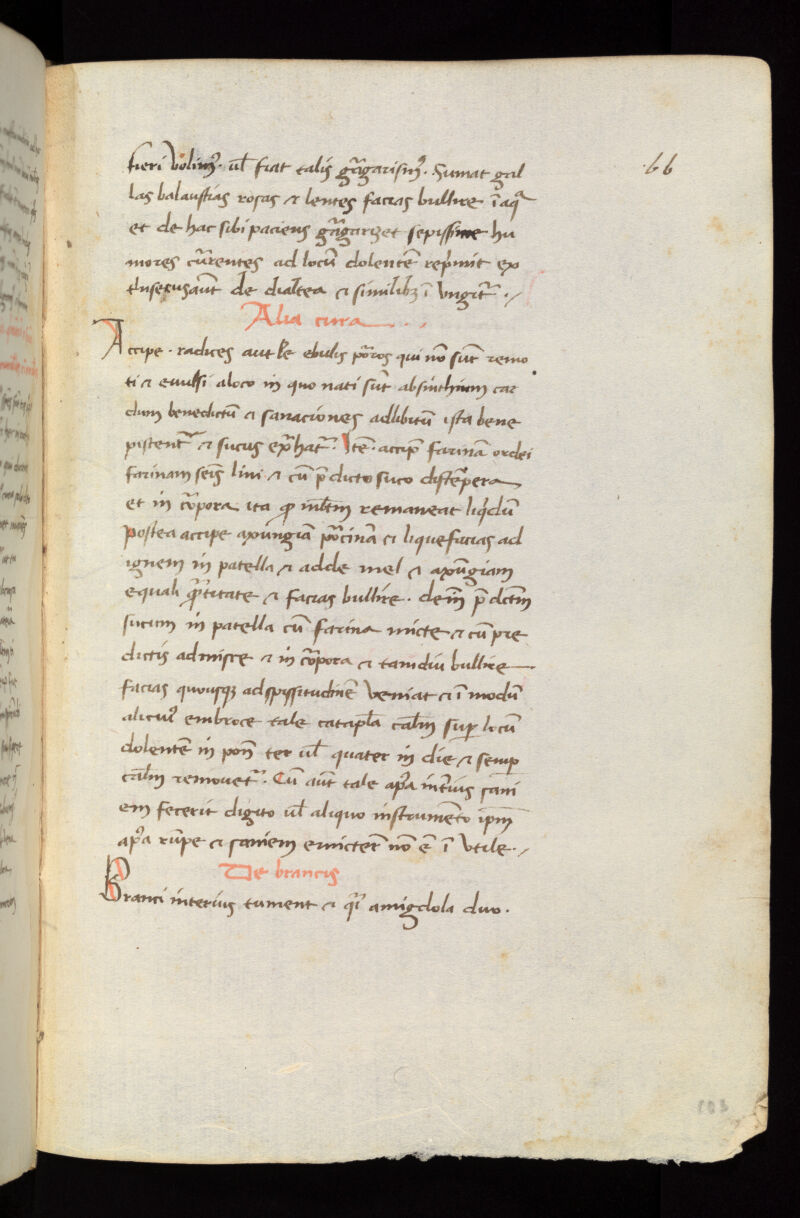 fieri volim9. ul fiat talis gargarism9. Sumat gal
las balaustias rosas et lentes facias bullire ī aqa
et de hac sibi paciens gargarizet sepissime hu
mores currentes ad locū dolentē reprimit ex
de dialtea et similibz ī ungūt.
Alia cura
Accipe . radices autle ebulis porros qui nō sūt remo
ti et euulsi aloco in quo nati sūt absinthium car
dum benedictū et sanaciones adlibitū ista bene
pistent et sucus exprhat. Itē. accipe farinam ordei
farinam seīs lini et cū pdicto suco distempera
et in corpora ita qd remaneat liqdū
postea accipe axungiā porcinā et liquefacias ad
ignem in patella et adde mel et axūgiam
equali qtitate et facias bullire. demū pdictm
sucum in patella cū farina micte et cū pre
dictis admisce et in corpora et tamdiu bullire
facias quousqz adspissitudinē veniat et ī modū
alicui9 embroce tale catapla calm sup locū
dolentē in pon ter ul quater in die et semp
calm remouet. Cū aūt tale apa interius sani
em fecerit digito ul aliquo instrumēto ipm
apa rūpe et saniem emicter nō ē ī utile.
De brancis
Branci interius tument et qi amigdola duo.
.66
103